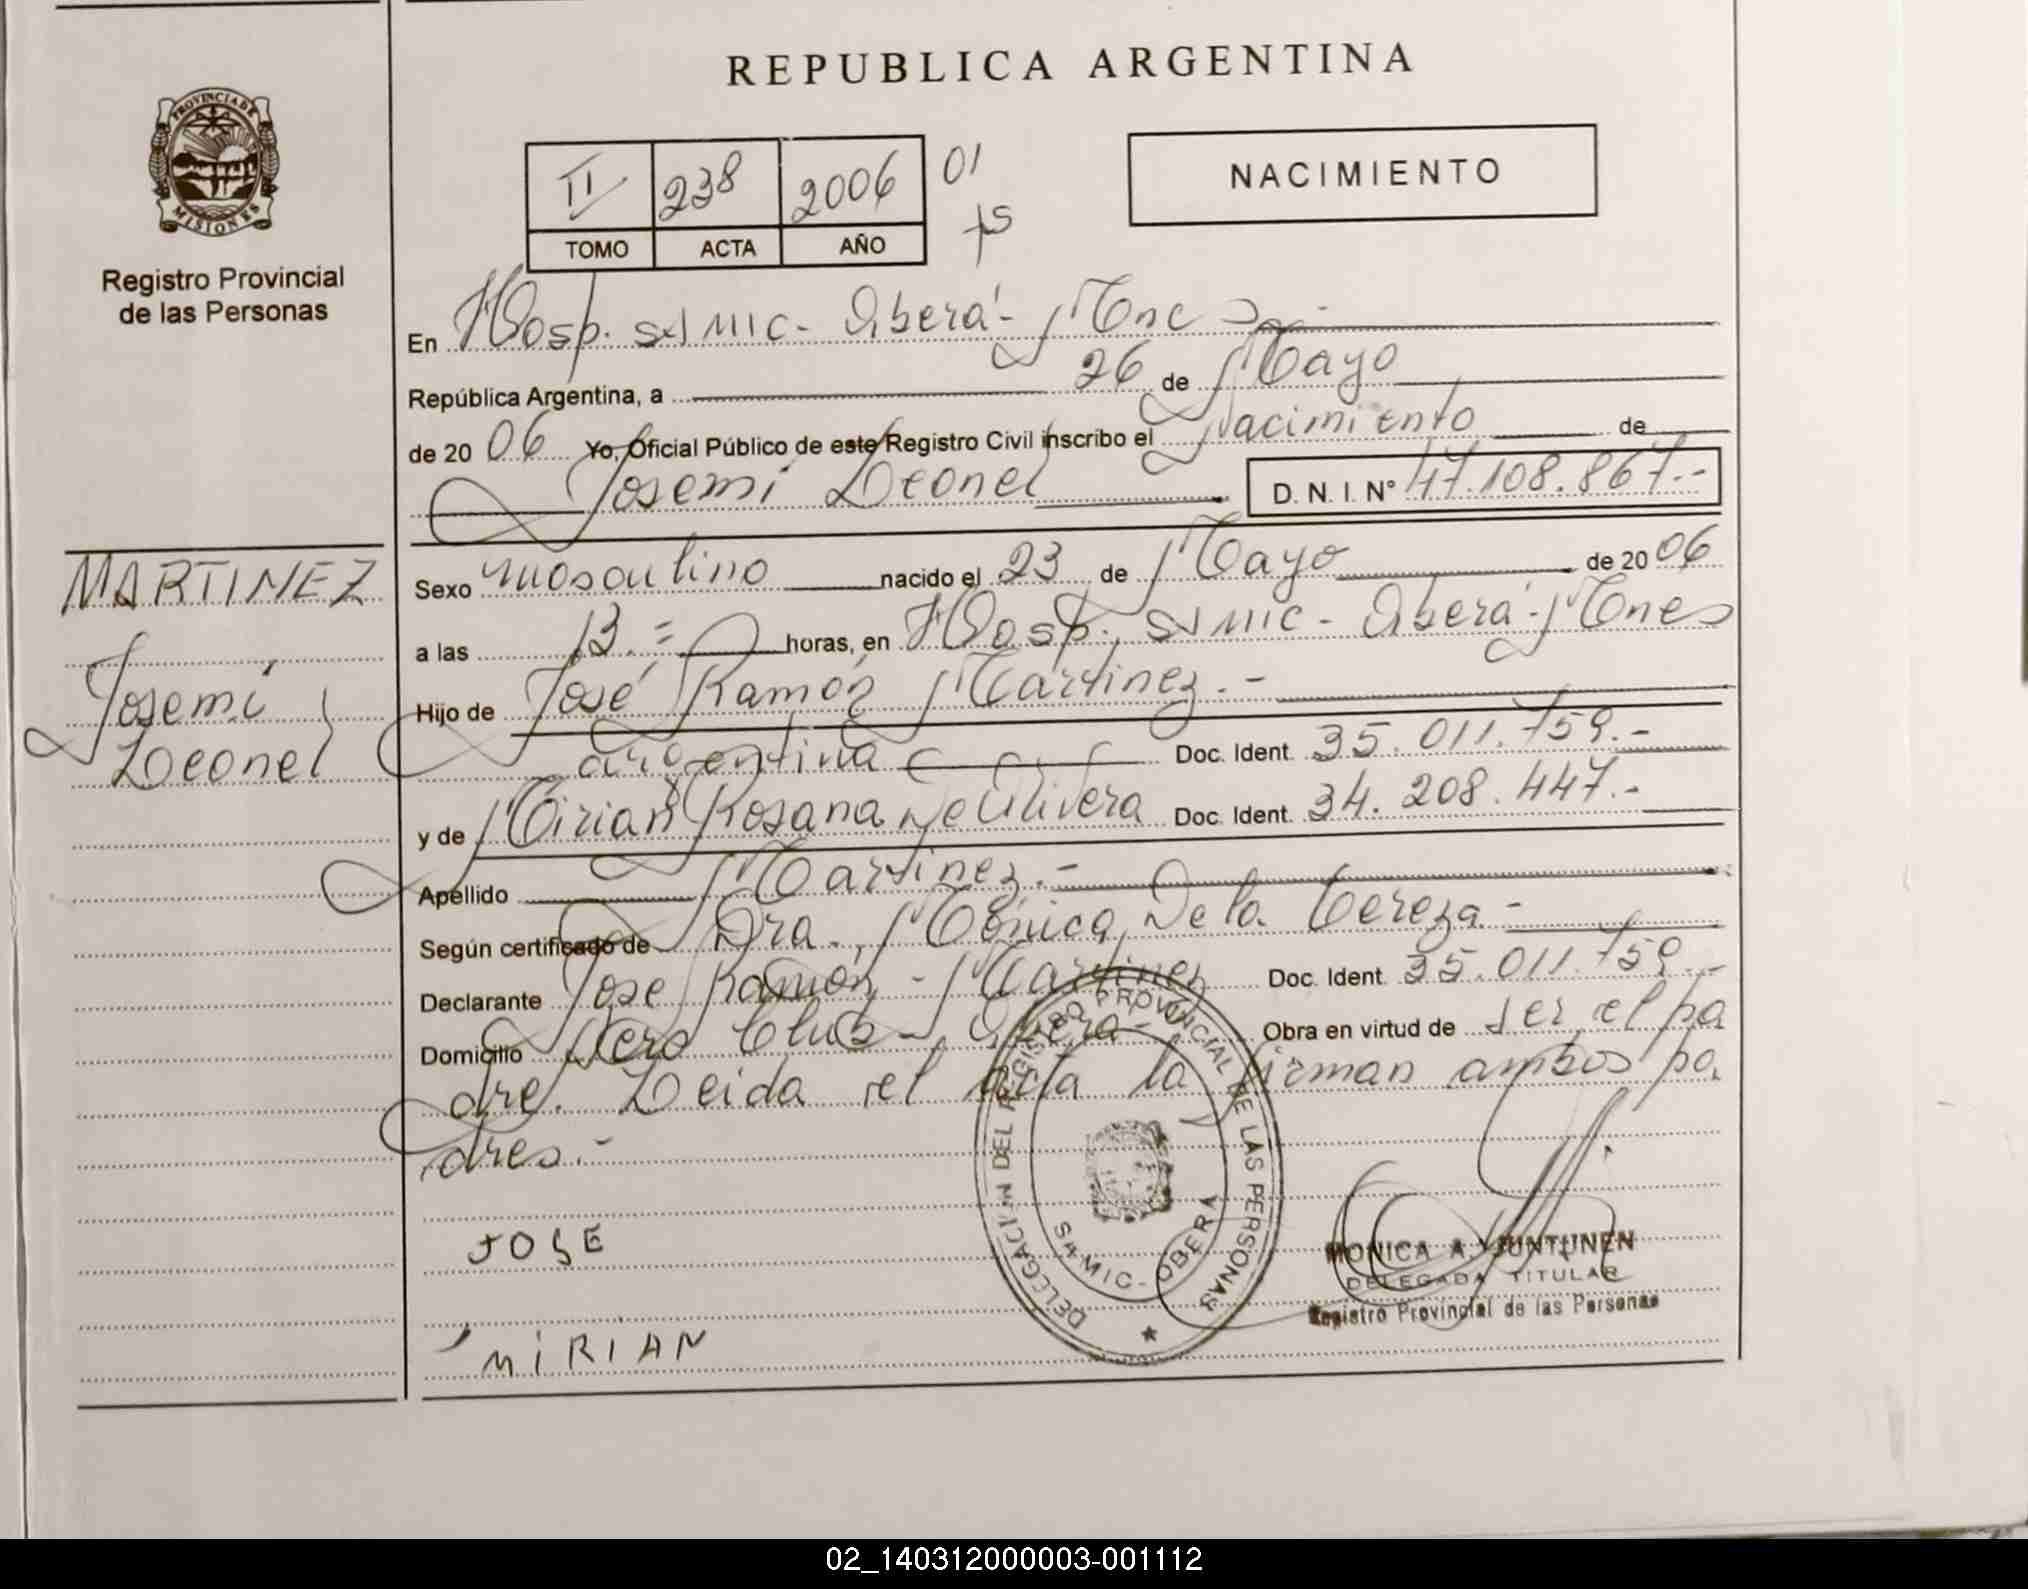 REPUBLICA ARGENTINA
PROVINCIA DE
MISIONES
Registro Provincial
de las Personas
II 238 2006 01
TOMO ACTA AÑO
NACIMIENTO
En Hosp. SAMIC - Oberá - Mnes
República Argentina, a 26 de Mayo
de 2006 Yo, Oficial Público de este Registro Civil inscribo el Nacimiento de
Josemí Leonel D. N. I. Nº 47.108.867.-
MARTINEZ
Josemí
Leonel
Sexo masculino nacido el 23 de Mayo de 2006
a las 13.= horas, en Hosp. SAMIC - Oberá - Mnes
Hijo de José Ramón Martinez.-
argentina Doc. Ident. 35.011.759.-
y de Mirian Rosana De Olivera Doc. Ident. 34.208.447.-
Apellido Martinez.-
Según certificado de Dra. Mónica De la Cereza.-
Declarante José Ramón - Martinez Doc. Ident. 35.011.759.-
Domicilio Aero Club - Oberá - Obra en virtud de ser el pa
dre. Leida el acta la firman ambos pa
dres.-
JOSE
MiRIAN
DELEGACION DEL REGISTRO PROVINCIAL DE LAS PERSONAS
SAMIC - OBERA
MONICA A. JUNTUNEN
DELEGADA TITULAR
Registro Provincial de las Personas
02_140312000003-001112